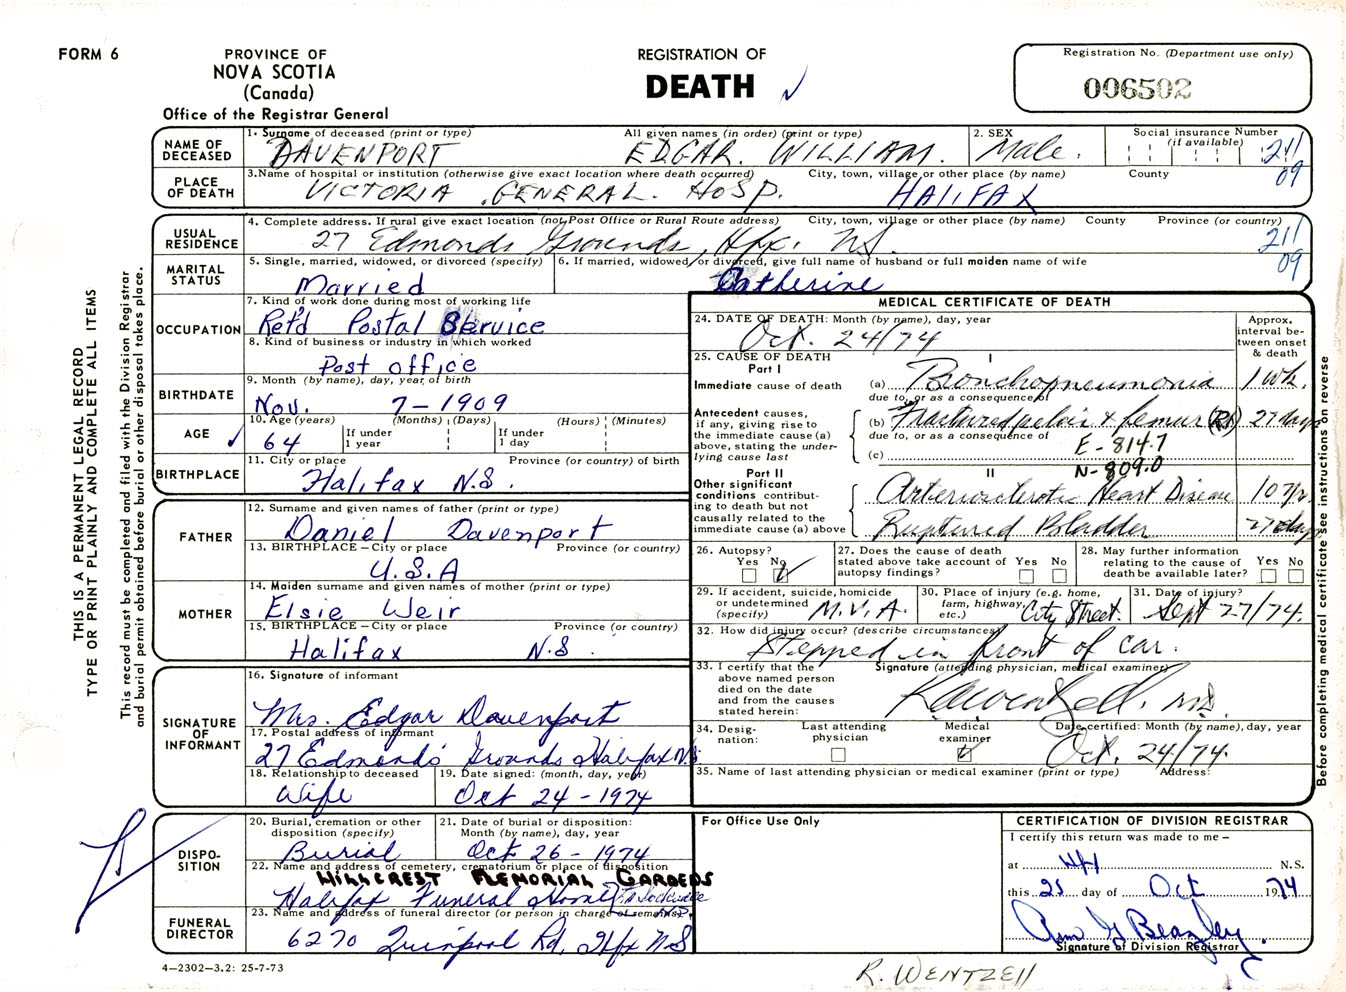 FORM 6
PROVINCE OF
NOVA SCOTIA
(Canada)
Office of the Registrar General
REGISTRATION OF
DEATH
Registration No. (Department use only)
006502
THIS IS A PERMANENT LEGAL RECORD
TYPE OR PRINT PLAINLY AND COMPLETE ALL ITEMS
This record must be completed and filed with the Division Registrar
and burial permit obtained before burial or other disposal takes place.
NAME OF DECEASED
1. Surname of deceased (print or type) All given names (in order) (print or type)
DAVENPORT EDGAR. WILLIAM.
2. SEX
Male.
Social insurance Number
(if available)
211
09
PLACE OF DEATH
3. Name of hospital or institution (otherwise give exact location where death occurred) City, town, village or other place (by name) County
VICTORIA GENERAL. HOSP. HALIFAX
USUAL RESIDENCE
4. Complete address. If rural give exact location (not Post Office or Rural Route address) City, town, village or other place (by name) County Province (or country)
27 Edmonds Grounds, Hfx. NS.
211
09
MARITAL STATUS
5. Single, married, widowed, or divorced (specify)
Married
6. If married, widowed or divorced, give full name of husband or full maiden name of wife
Catherine
OCCUPATION
7. Kind of work done during most of working life
Ret'd Postal Service
8. Kind of business or industry in which worked
Post office
BIRTHDATE
9. Month (by name), day, year, of birth
Nov. 7-1909
AGE
10. Age (years) (Months) (Days) (Hours) (Minutes)
64 If under 1 year If under 1 day
BIRTHPLACE
11. City or place Province (or country) of birth
Halifax N.S.
FATHER
12. Surname and given names of father (print or type)
Daniel Davenport
13. BIRTHPLACE - City or place Province (or country)
U.S.A
MOTHER
14. Maiden surname and given names of mother (print or type)
Elsie Weir
15. BIRTHPLACE - City or place Province (or country)
Halifax N.S.
SIGNATURE OF INFORMANT
16. Signature of informant
Mrs. Edgar Davenport
17. Postal address of informant
27 Edmonds Grounds Halifax N.S.
18. Relationship to deceased
Wife
19. Date signed: (month, day, year)
Oct 24-1974
DISPOSITION
20. Burial, cremation or other disposition (specify)
Burial
21. Date of burial or disposition: Month (by name), day, year
Oct 26-1974
22. Name and address of cemetery, crematorium or place of disposition
HILLCREST MEMORIAL GARDENS
Halifax Funeral Home
FUNERAL DIRECTOR
23. Name and address of funeral director (or person in charge of remains)
6270 Quinpool Rd, Hfx N.S
4-2302-3.2: 25-7-73
MEDICAL CERTIFICATE OF DEATH
24. DATE OF DEATH: Month (by name), day, year
Oct. 24/74
Approx. interval between onset & death
25. CAUSE OF DEATH
Part I
I
Immediate cause of death
(a) Bronchopneumonia 1 wk.
due to, or as a consequence of
Antecedent causes, if any, giving rise to the immediate cause (a) above, stating the underlying cause last
(b) Fractured pelvis & femur (Rt) 27 days
due to, or as a consequence of
E-814.7
(c)
N-809.0
Part II
II
Other significant conditions contributing to death but not causally related to the immediate cause (a) above
Arteriosclerotic Heart Disease 10 yr.
Ruptured Bladder 27 days
26. Autopsy?
Yes No
27. Does the cause of death stated above take account of autopsy findings?
Yes No
28. May further information relating to the cause of death be available later?
Yes No
29. If accident, suicide, homicide or undetermined (specify)
M.V.A.
30. Place of injury (e.g. home, farm, highway, etc.)
City Street.
31. Date of injury?
Sept 27/74.
32. How did injury occur? (describe circumstances)
Stepped in front of car.
33. I certify that the above named person died on the date and from the causes stated herein:
Signature (attending physician, medical examiner)
34. Designation:
Last attending physician
Medical examiner
Date certified: Month (by name), day, year
Oct. 24/74.
35. Name of last attending physician or medical examiner (print or type) Address:
Before completing medical certificate see instructions on reverse
For Office Use Only
CERTIFICATION OF DIVISION REGISTRAR
I certify this return was made to me -
at HX N.S.
this 25 day of Oct 1974
Signature of Division Registrar
R. WENTZELL